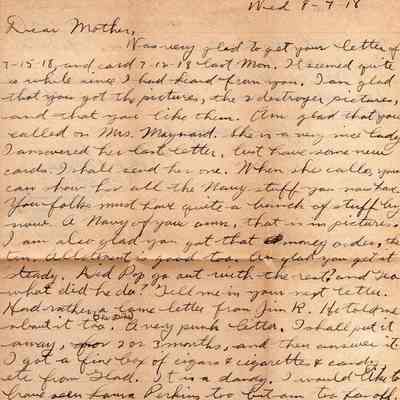 Wed 8-7-18
Dear Mother,
Was very glad to get your letter of
7-15-18, and card 7-12-18 last Mon. It seemed quite
a while since I had heard from you. I am glad
that you got the pictures, the 2 destroyer pictures,
and that you like them. Am glad that you
called on Mrs. Maynard. She is a very nice lady
I answered her last letter, but have some new
cards. I shall send her one. When she calls, you
can show her all the Navy stuff you now have.
You folks must have quite a bunch of stuff by
now. A Navy of your own, that is in pictures.
I am also glad you got that money order, the
Allotment is good too. Am glad you get it
steady. Did Pop go out with the rest? and
what did he do? Tell me in your next letter.
Had rather a tame letter from Jim K. He told me
about it too. A very punk letter. I shall put it
away, for 2 or 3 months, and then answer it.
I got a fine box of cigars & cigarettes & candy
etc from Glad. It is a dandy. I would like to
have seen Laura Perkins too but am too far off,